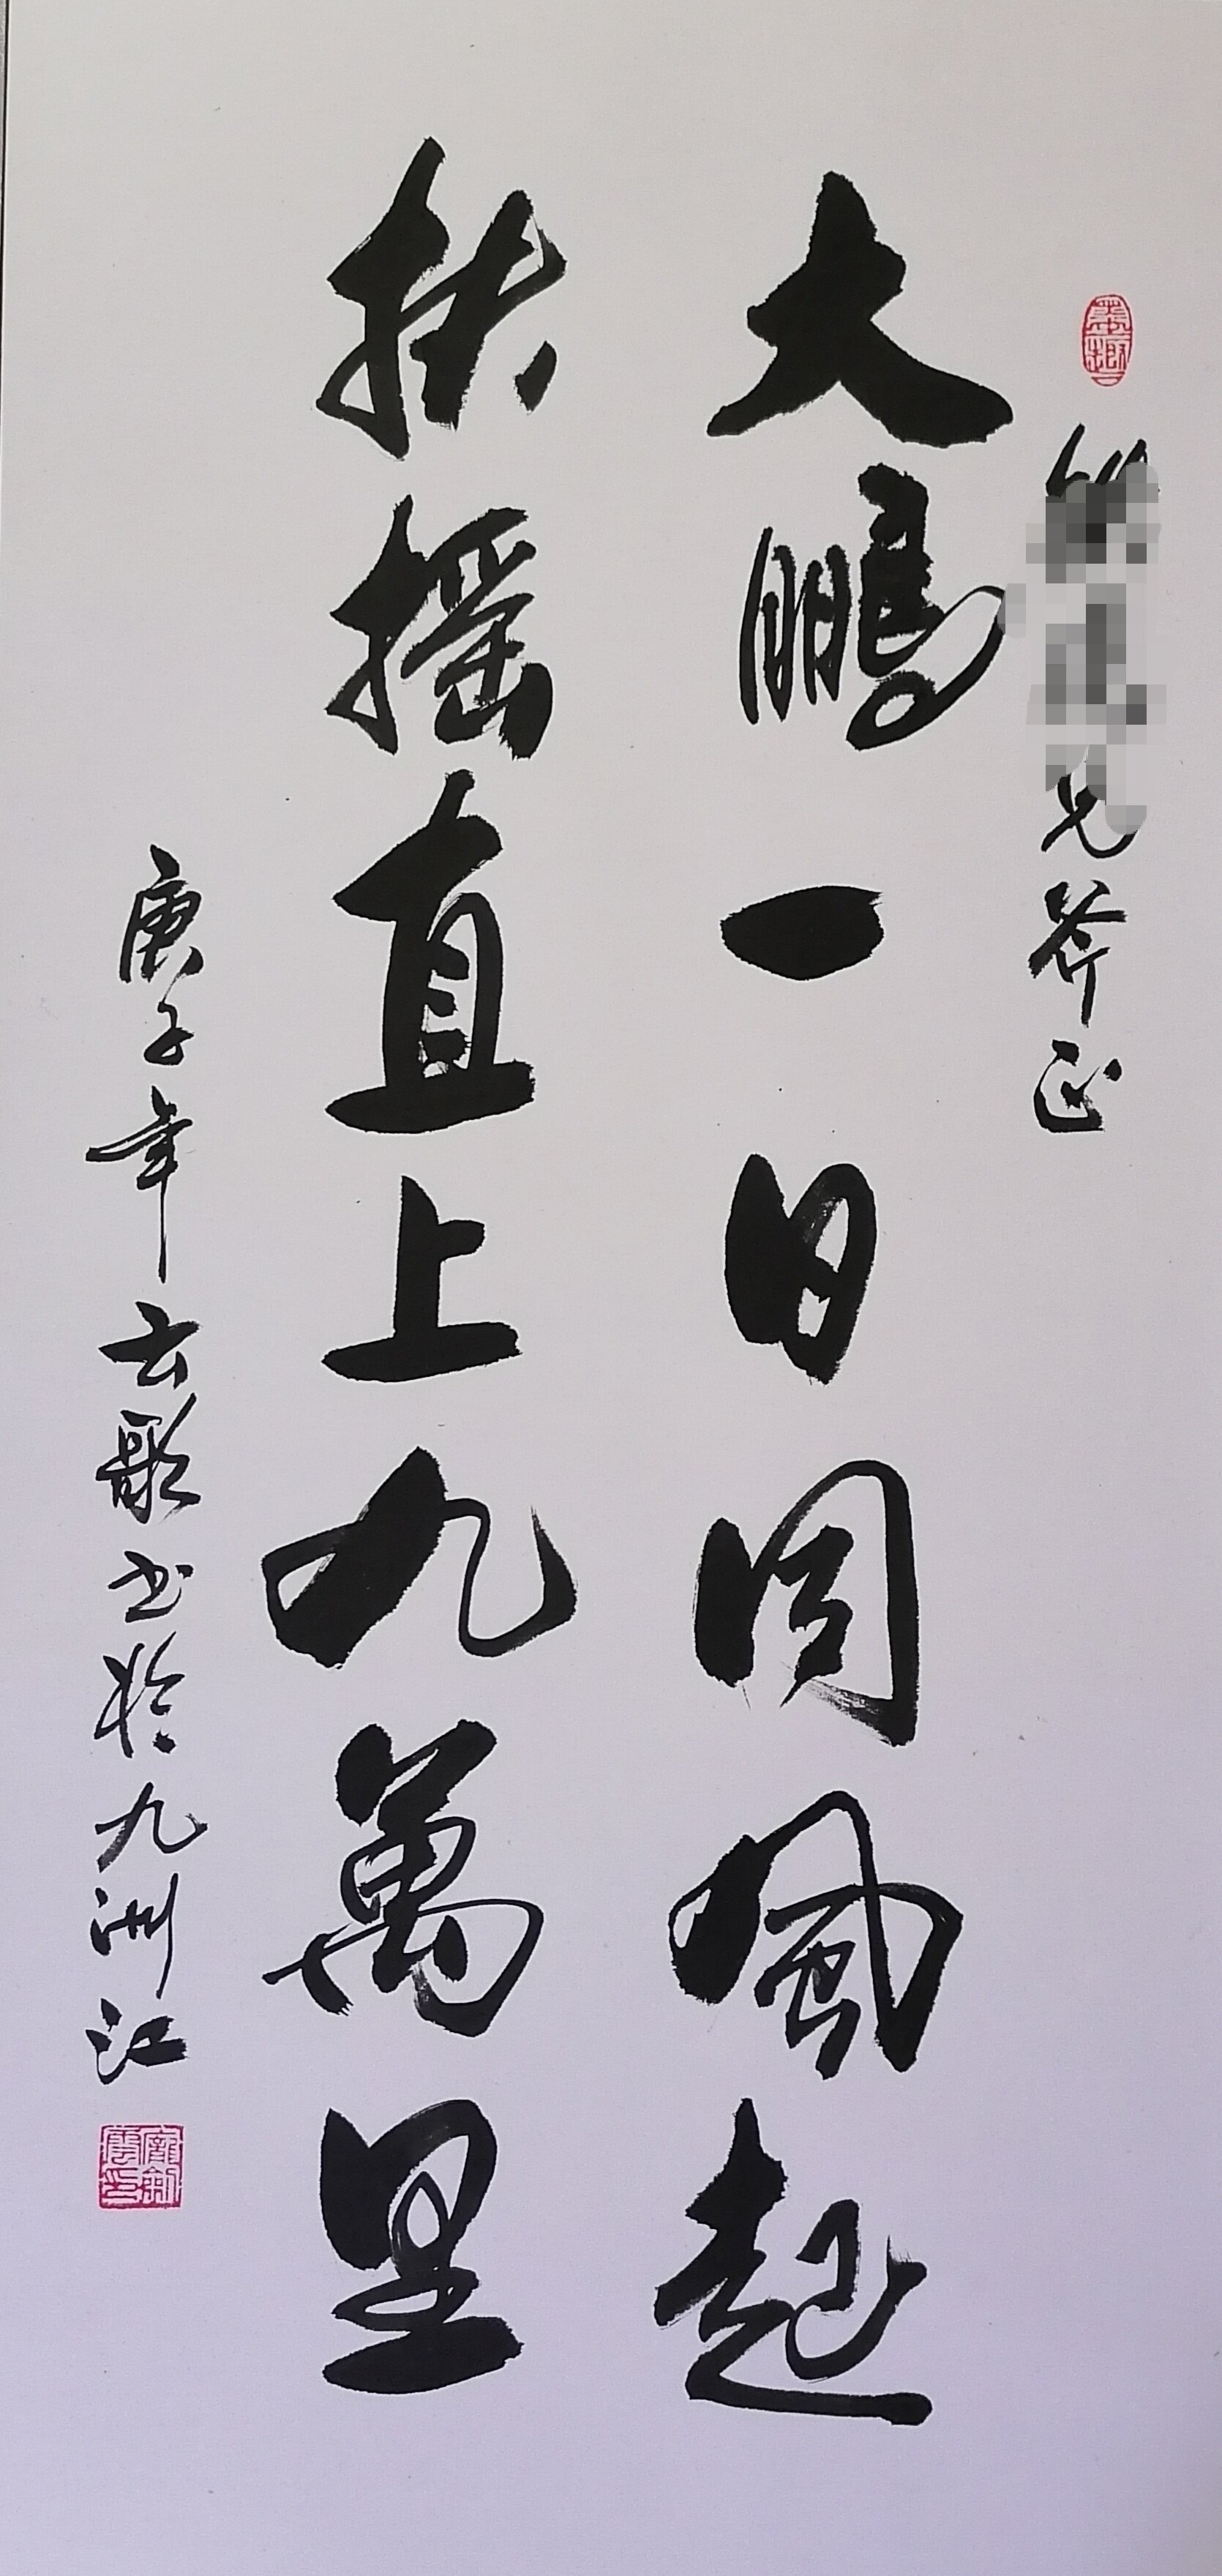 兄斧正
大鵬一日同風起
扶摇直上九萬里
庚子年云歌书於九洲江